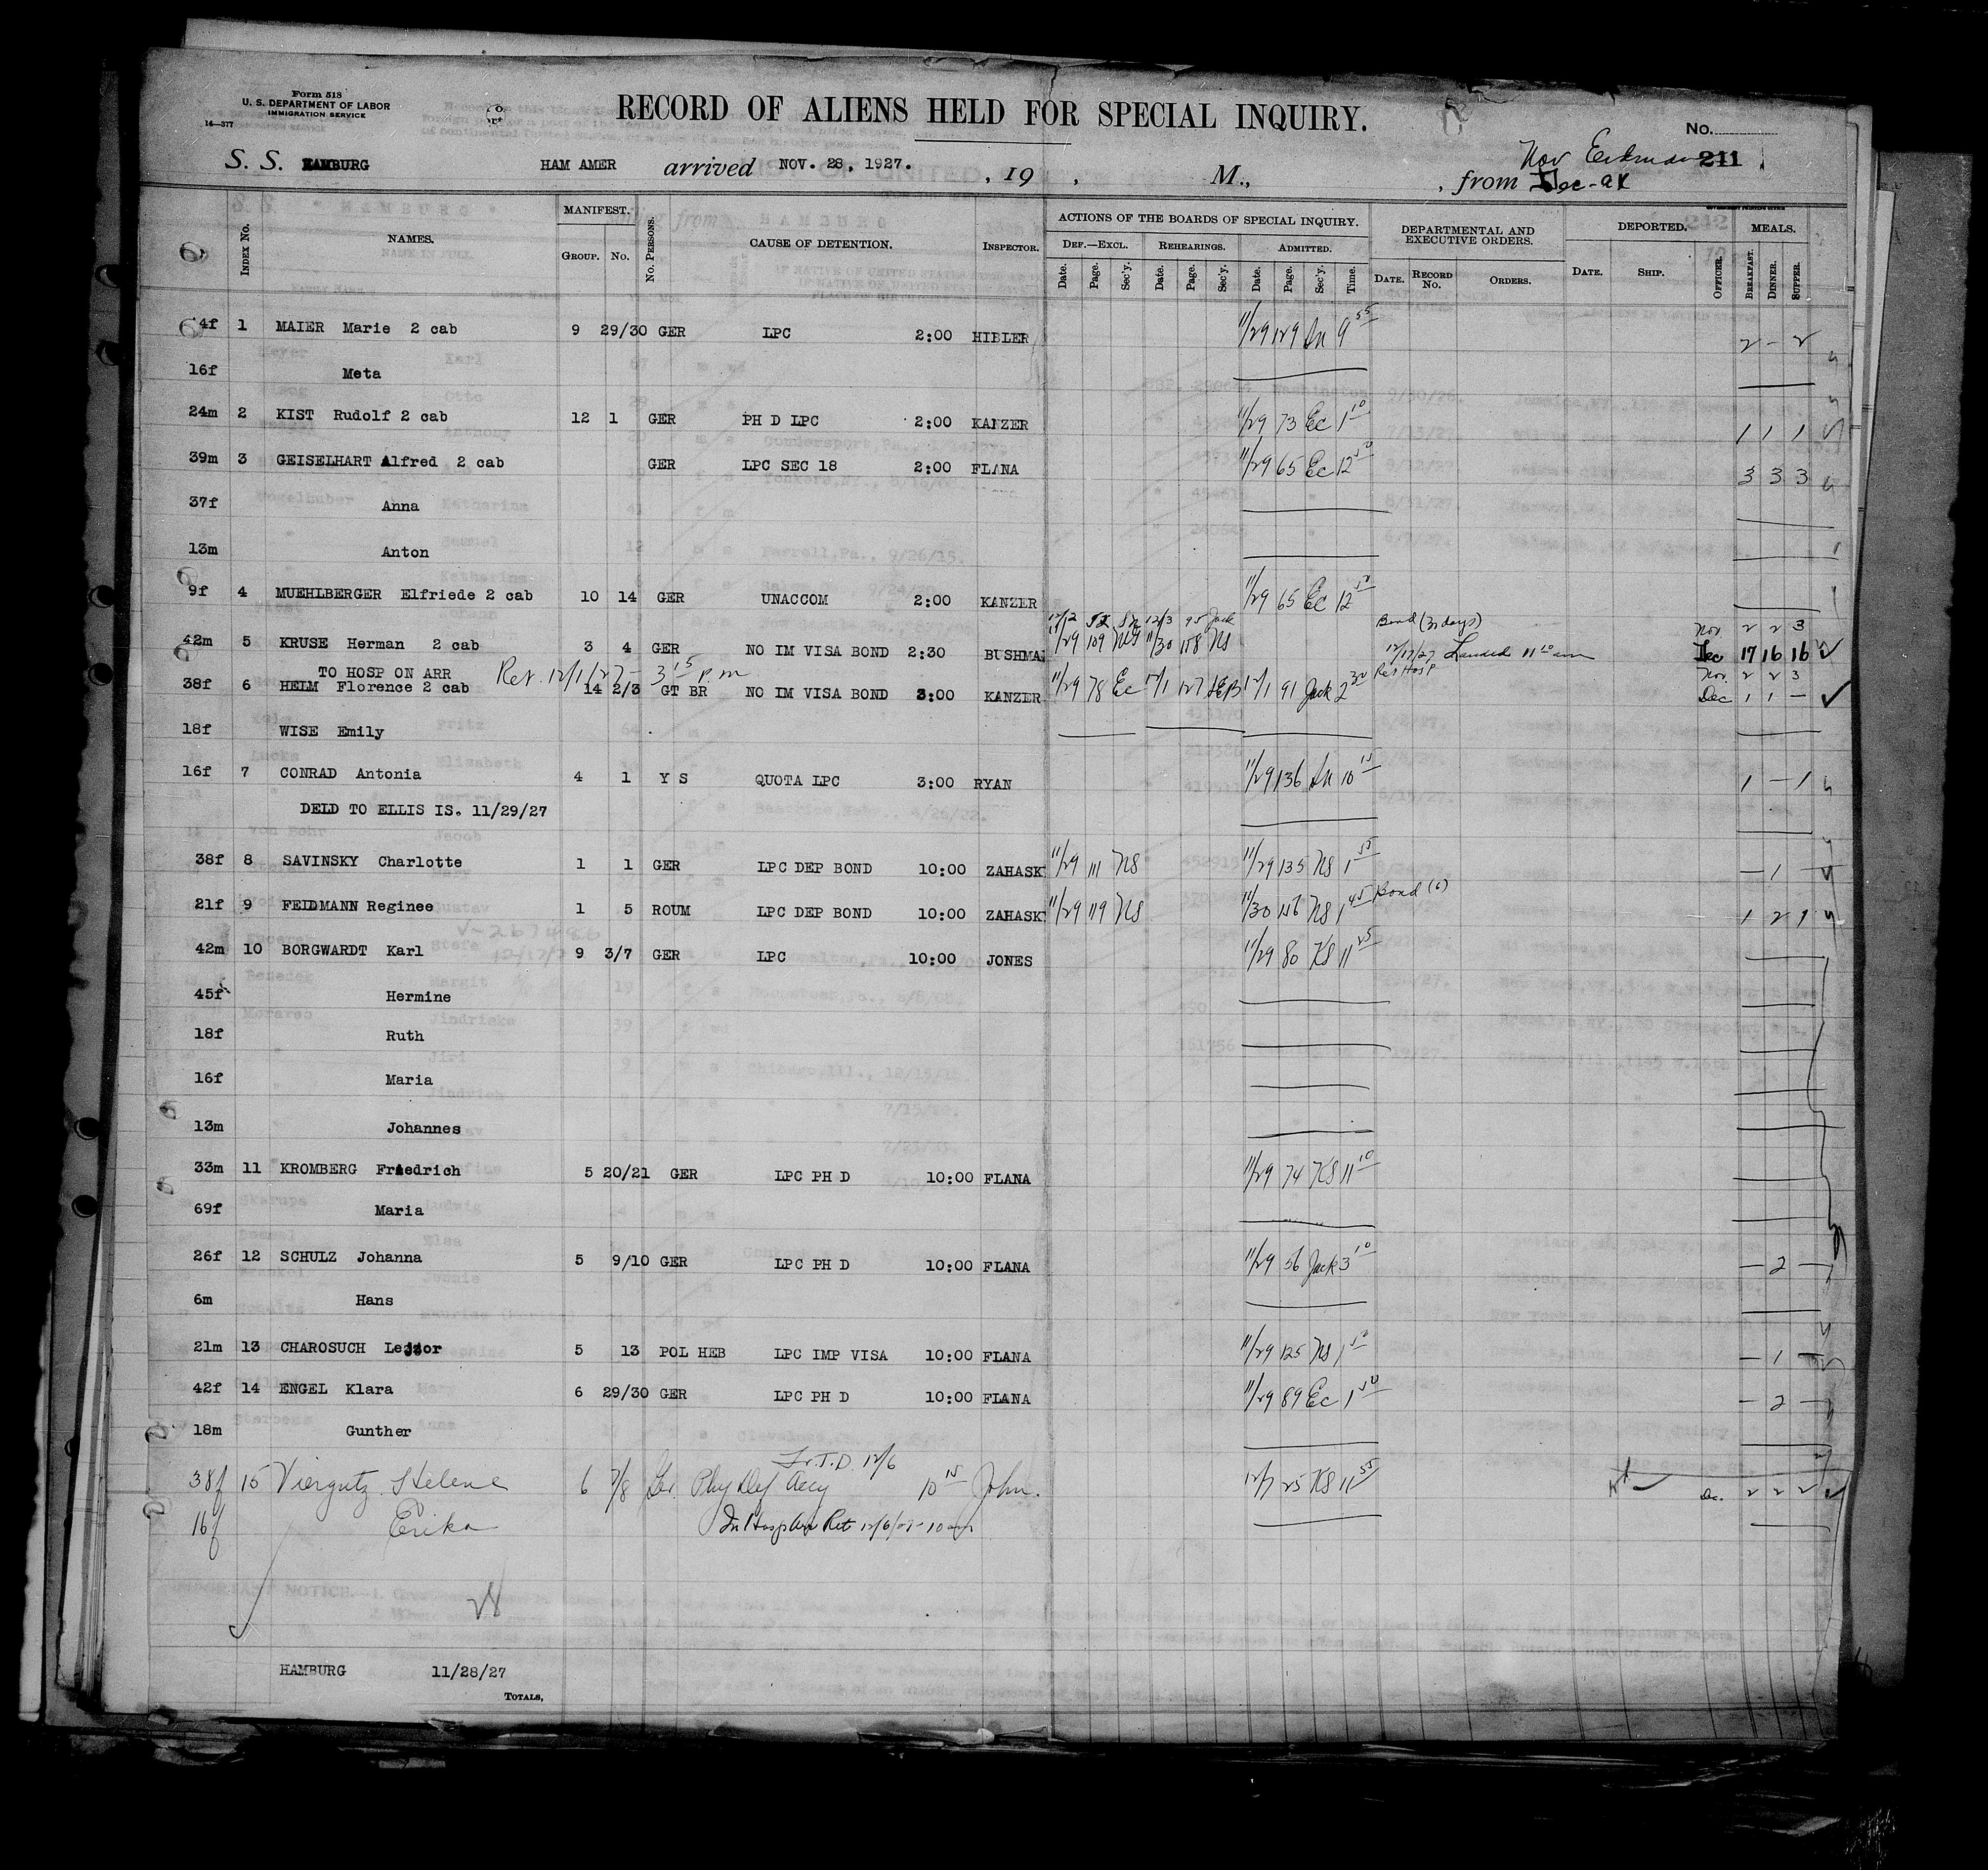 Form 518
U. S. DEPARTMENT OF LABOR
IMMIGRATION SERVICE
14—377
RECORD OF ALIENS HELD FOR SPECIAL INQUIRY.
No.
211
S. S. HAMBURG HAM AMER arrived NOV. 28, 1927. , 19 , M., , from
INDEX No. NAMES. MANIFEST. GROUP. No. No. PERSONS. CAUSE OF DETENTION. INSPECTOR. ACTIONS OF THE BOARDS OF SPECIAL INQUIRY. DEF.—EXCL. REHEARINGS. ADMITTED. Date. Page. Sec'y. Date. Page. Sec'y. Date. Page. Sec'y. Time. DEPARTMENTAL AND EXECUTIVE ORDERS. DATE. RECORD No. ORDERS. DEPORTED. DATE. SHIP. OFFICER. MEALS. BREAKFAST. DINNER. SUPPER.
14f 1 MAIER Marie 2 cab 9 29/30 GER LPC 2:00 HIBLER 11/29 129 9 55 2 - 2
16f Meta
24m 2 KIST Rudolf 2 cab 12 1 GER PH D LPC 2:00 KANZER 11/29 73 Ec 1 10 1 1 1
39m 3 GEISELHART Alfred 2 cab GER LPC SEC 18 2:00 FLANA 11/29 65 Ec 12 50 3 3 3
37f Anna
13m Anton
9f 4 MUEHLBERGER Elfriede 2 cab 10 14 GER UNACCOM 2:00 KANZER 11/29 65 Ec 12 50
12/3 95 Jack Bond (30 days) Nov. 2 2 3
42m 5 KRUSE Herman 2 cab 3 4 GER NO IM VISA BOND 2:30 BUSHMA 11/29 109 NS 11/30 158 NS 12/17/27 Landed 11 10 am Dec 17 16 16
TO HOSP ON ARR Ret. 12/1/27 - 3 15 P.m Nov. 2 2 3
38f 6 HELM Florence 2 cab 14 2/3 GT BR NO IM VISA BOND 3:00 KANZER 11/29 78 Ec 12/1 127 12/1 91 Jack 2 30 Ret Hosp Dec 1 1 —
18f WISE Emily
16f 7 CONRAD Antonia 4 1 Y S QUOTA LPC 3:00 RYAN 11/29 136 10 15 1 - 1
DELD TO ELLIS IS. 11/29/27
38f 8 SAVINSKY Charlotte 1 1 GER LPC DEP BOND 10:00 ZAHASK 11/29 111 NS 11/29 135 NS 1 55 - 1 -
21f 9 FEIDMANN Reginee 1 5 ROUM LPC DEP BOND 10:00 ZAHASK 11/29 119 NS 11/30 146 NS 1 45 Bond (6) 1 2 1
42m 10 BORGWARDT Karl 9 3/7 GER LPC 10:00 JONES 11/29 80 KS 11 25
45f Hermine
18f Ruth
16f Maria
13m Johannes
33m 11 KROMBERG Friedrich 5 20/21 GER LPC PH D 10:00 FLANA 11/29 74 KS 11 10
69f Maria
26f 12 SCHULZ Johanna 5 9/10 GER LPC PH D 10:00 FLANA 11/29 56 Jack 3 10 - 2 -
6m Hans
21m 13 CHAROSUCH 5 13 POL HEB LPC IMP VISA 10:00 FLANA 11/29 125 NS 1 50 - 1 -
42f 14 ENGEL Klara 6 29/30 GER LPC PH D 10:00 FLANA 11/29 89 Ec 1 50 - 2 -
18m Gunther
12/6
38f 15 Viergutz Helene 6 7/8 Ger Phy Def Accy 10 15 John. 12/7 25 KS 11 55 Dec. 2 2 2
16f Erika In Hosp Ret 12/6/27 - 10 am
28
HAMBURG 11/28/27
TOTALS,